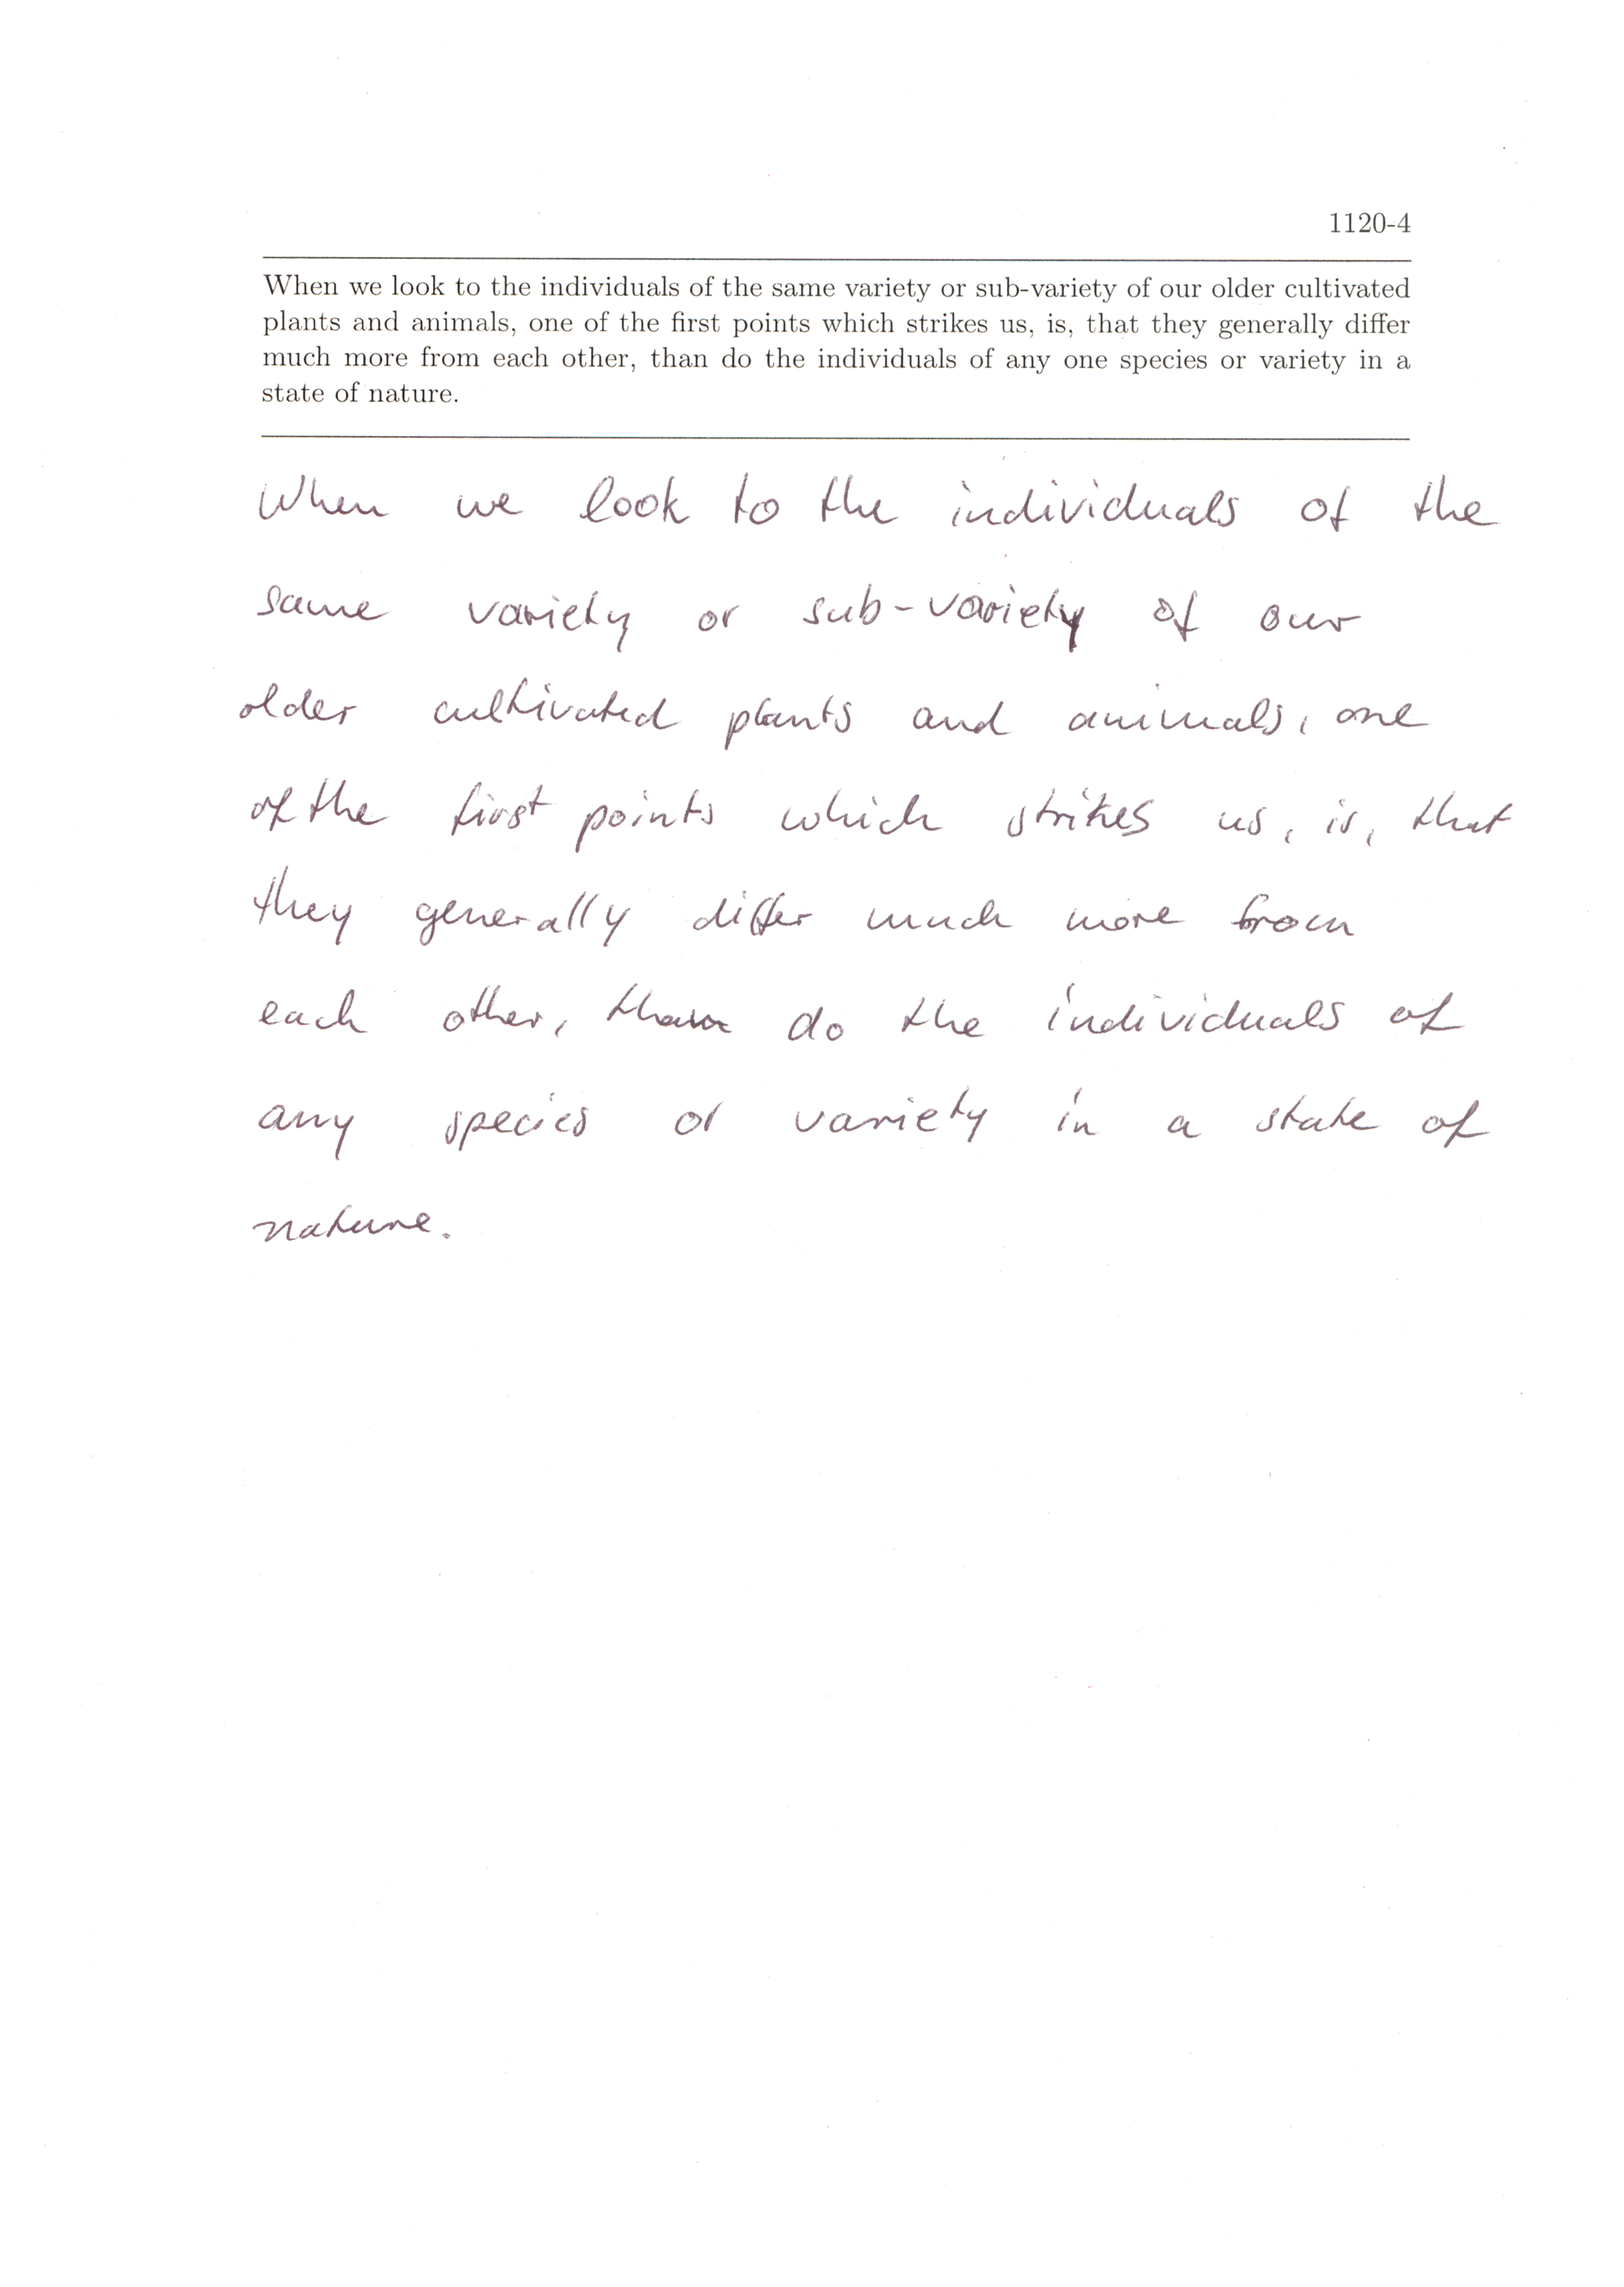 1120-4
When we look to the individuals of the same variety or sub-variety of our older cultivated
plants and animals, one of the first points which strikes us, is, that they generally differ
much more from each other, than do the individuals of any one species or variety in a
state of nature.
When we look to the individuals of the
same variety or sub-variety of our
older cultivated plants and animals, one
of the first points which strikes us, is, that
they generally differ much more from
each other, than do the individuals of
any species or variety in a state of
nature.